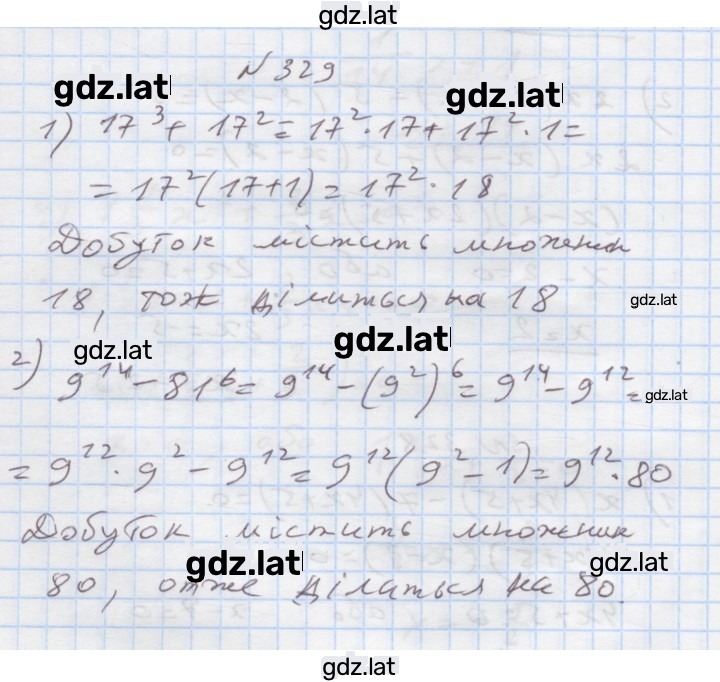 gdz.lat
N 329
gdz.lat
gdz.lat
1) 17³ + 17² = 17² · 17 + 17² · 1 =
= 17² (17 + 1) = 17² · 18
Добуток містить множник
18, тож ділиться на 18
gdz.lat
gdz.lat
gdz.lat
2) 9¹⁴ - 81⁶ = 9¹⁴ - (9²)⁶ = 9¹⁴ - 9¹² =
gdz.lat
= 9¹² · 9² - 9¹² = 9¹² (9² - 1) = 9¹² · 80
Добуток містить множник
gdz.lat
gdz.lat
80, отже ділиться на 80.
gdz.lat